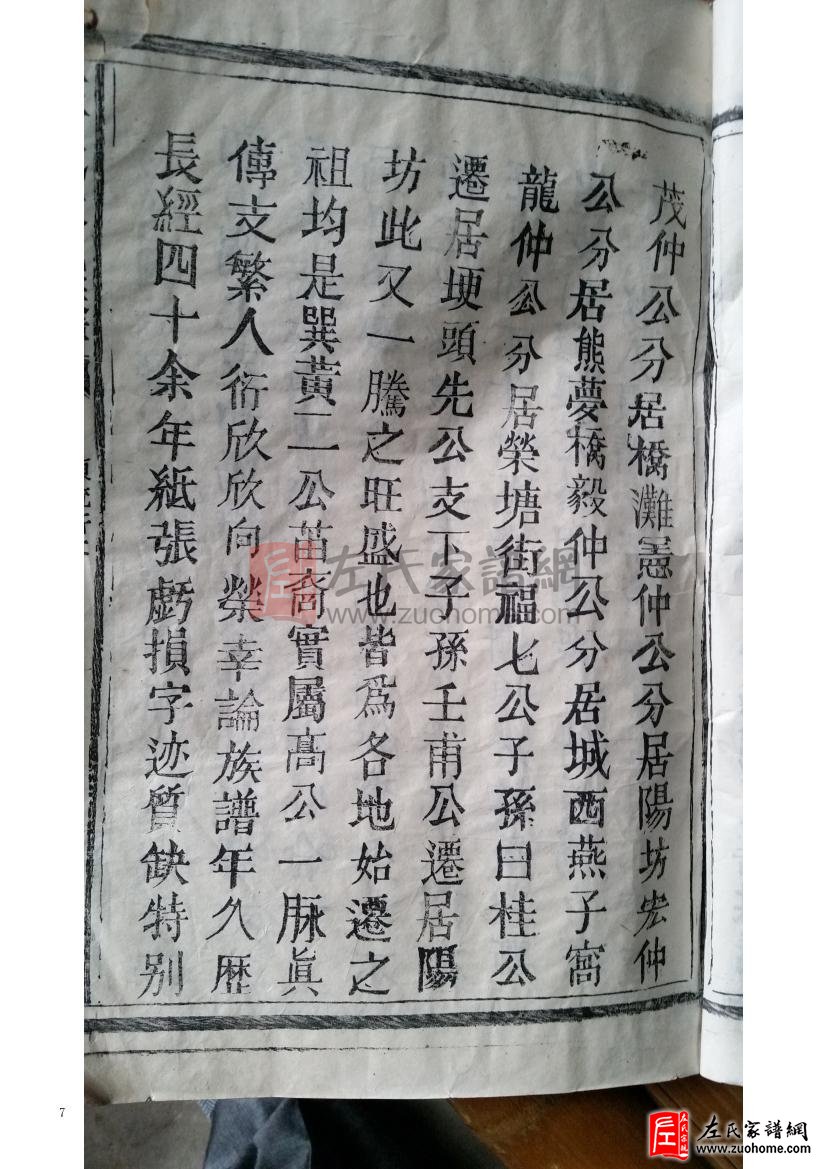 茂仲公分居橋灘憲仲公分居陽坊宏仲
公分居熊夢橋毅仲公分居城西燕子窩
龍仲公分居榮塘街福七公子孫曰桂公
遷居埂頭先公支下子孫壬甫公遷居陽
坊此又一騰之旺盛也皆為各地始遷之
祖均是巽黃二公苗裔實屬高公一脉眞
傳支繁人衍欣欣向榮幸論族譜年久歷
長經四十余年紙張虧損字迹質缺特别
左氏家譜網
www.zuohome.com
7
左氏家譜網
www.zuohome.com